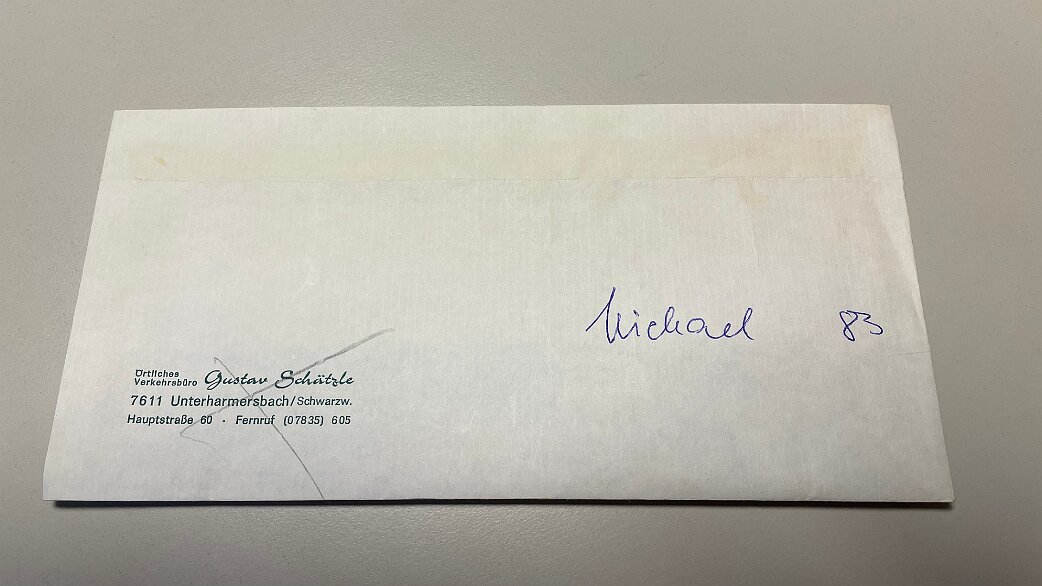 Michael 83
Örtliches
Verkehrsbüro Gustav Schätzle
7611 Unterharmersbach/Schwarzw.
Hauptstraße 60 · Fernruf (07835) 605